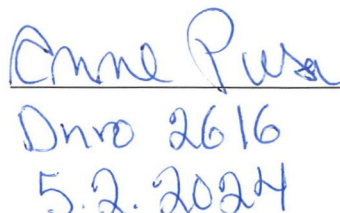 Anne Pusa
Dnro 2616
5.2.2024